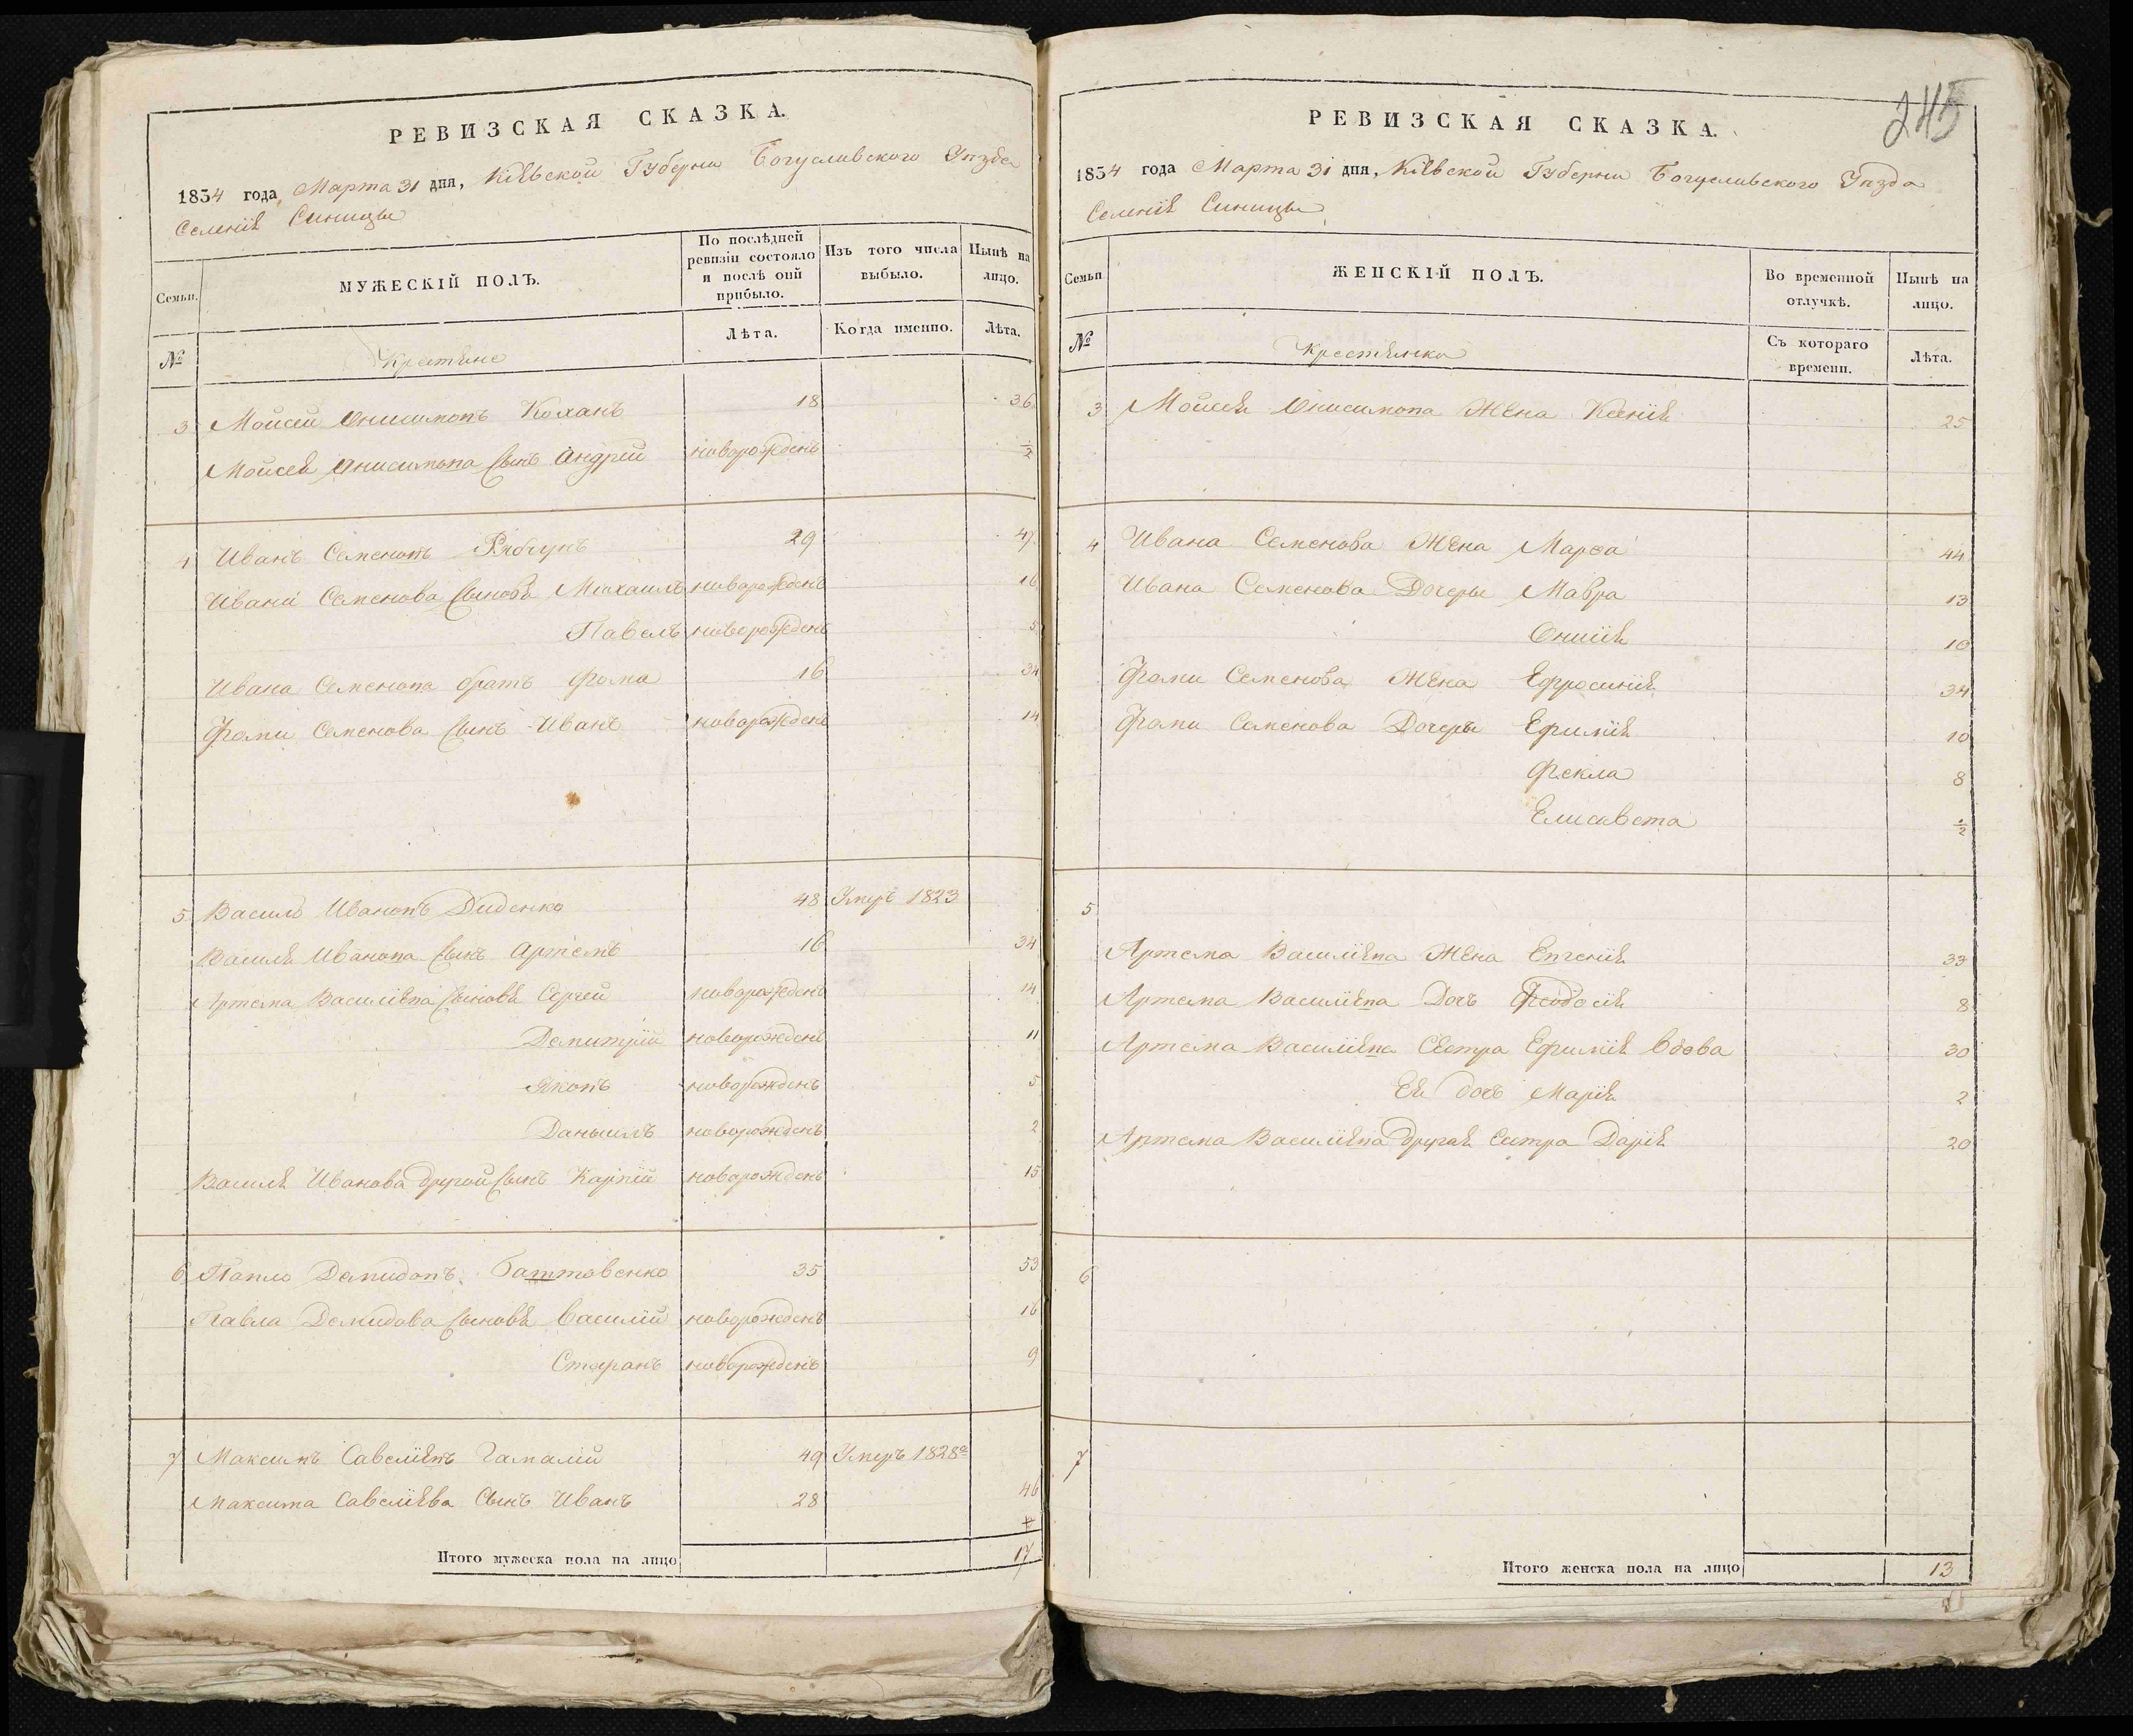 РЕВИЗСКАЯ СКАЗКА.
1854 года Марта 31 дня, Кіевской Губерни Богуславского Уѣзда
Селенія Синицы
Семьи.
МУЖЕСКІЙ ПОЛЪ.
По послѣдней ревизіи состояло и послѣ оній прибыло.
Изъ того числа выбыло.
Нынѣ на лицо.
№
Крестяне
Лѣта.
Когда именно.
Лѣта.
3 Мойсей Онисимовъ Коханъ 18 36
Мойсея Онисимова Сынъ Андрей новорожденъ ½
4 Иванъ Семеновъ Рябчунъ 29 47
Ивана Семенова Сыновя Михаилъ новорожденъ 16
Павелъ новорожденъ 5
Ивана Семенова братъ Фома 16 34
Фомы Семенова Сынъ Иванъ новорожденъ 14
5 Василь Ивановъ Диденко 48 Умеръ 1823
Василя Иванова Сынъ Артемъ 16 34
Артема Василієва Сыновя Сергей новорожденъ 14
Демитрій новорожденъ 11
Яковъ новорожденъ 5
Даныилъ новорожденъ 2
Василя Иванова другой Сынъ Карпій новорожденъ 15
6 Павло Демидовъ Баштовенко 35 53
Павла Демидова Сыновя Василий новорожденъ 16
Стефанъ новорожденъ 9
7 Максимъ Савелієвъ Гамалій 49 Умеръ 1828го
Максима Савелієва Сынъ Иванъ 28 46
Итого мужеска пола на лицо 17
245
РЕВИЗСКАЯ СКАЗКА.
1854 года Марта 31 дня, Кіевской Губерни Богуславского Уѣзда
Селенія Синицы
Семьи
ЖЕНСКІЙ ПОЛЪ.
Во временной отлучкѣ.
Нынѣ на лицо.
№
Крестянки
Съ котораго времени.
Лѣта.
3 Мойсея Онисимова Жена Ксенія 25
4 Ивана Семенова Жена Марѳа 44
Ивана Семенова Дочеры Мавра 13
Онисія 10
Фомы Семенова Жена Ефросинія 34
Фомы Семенова Дочеры Ефимія 10
Фекла 8
Елисавета ½
5
Артема Василієва Жена Евгенія 33
Артема Василієва Дочъ Феодосія 8
Артема Василієва Сестра Ефимія Вдова 30
Ея дочъ Марія 2
Артема Василієва другая Сестра Дарія 20
6
7
Итого женска пола на лицо 13